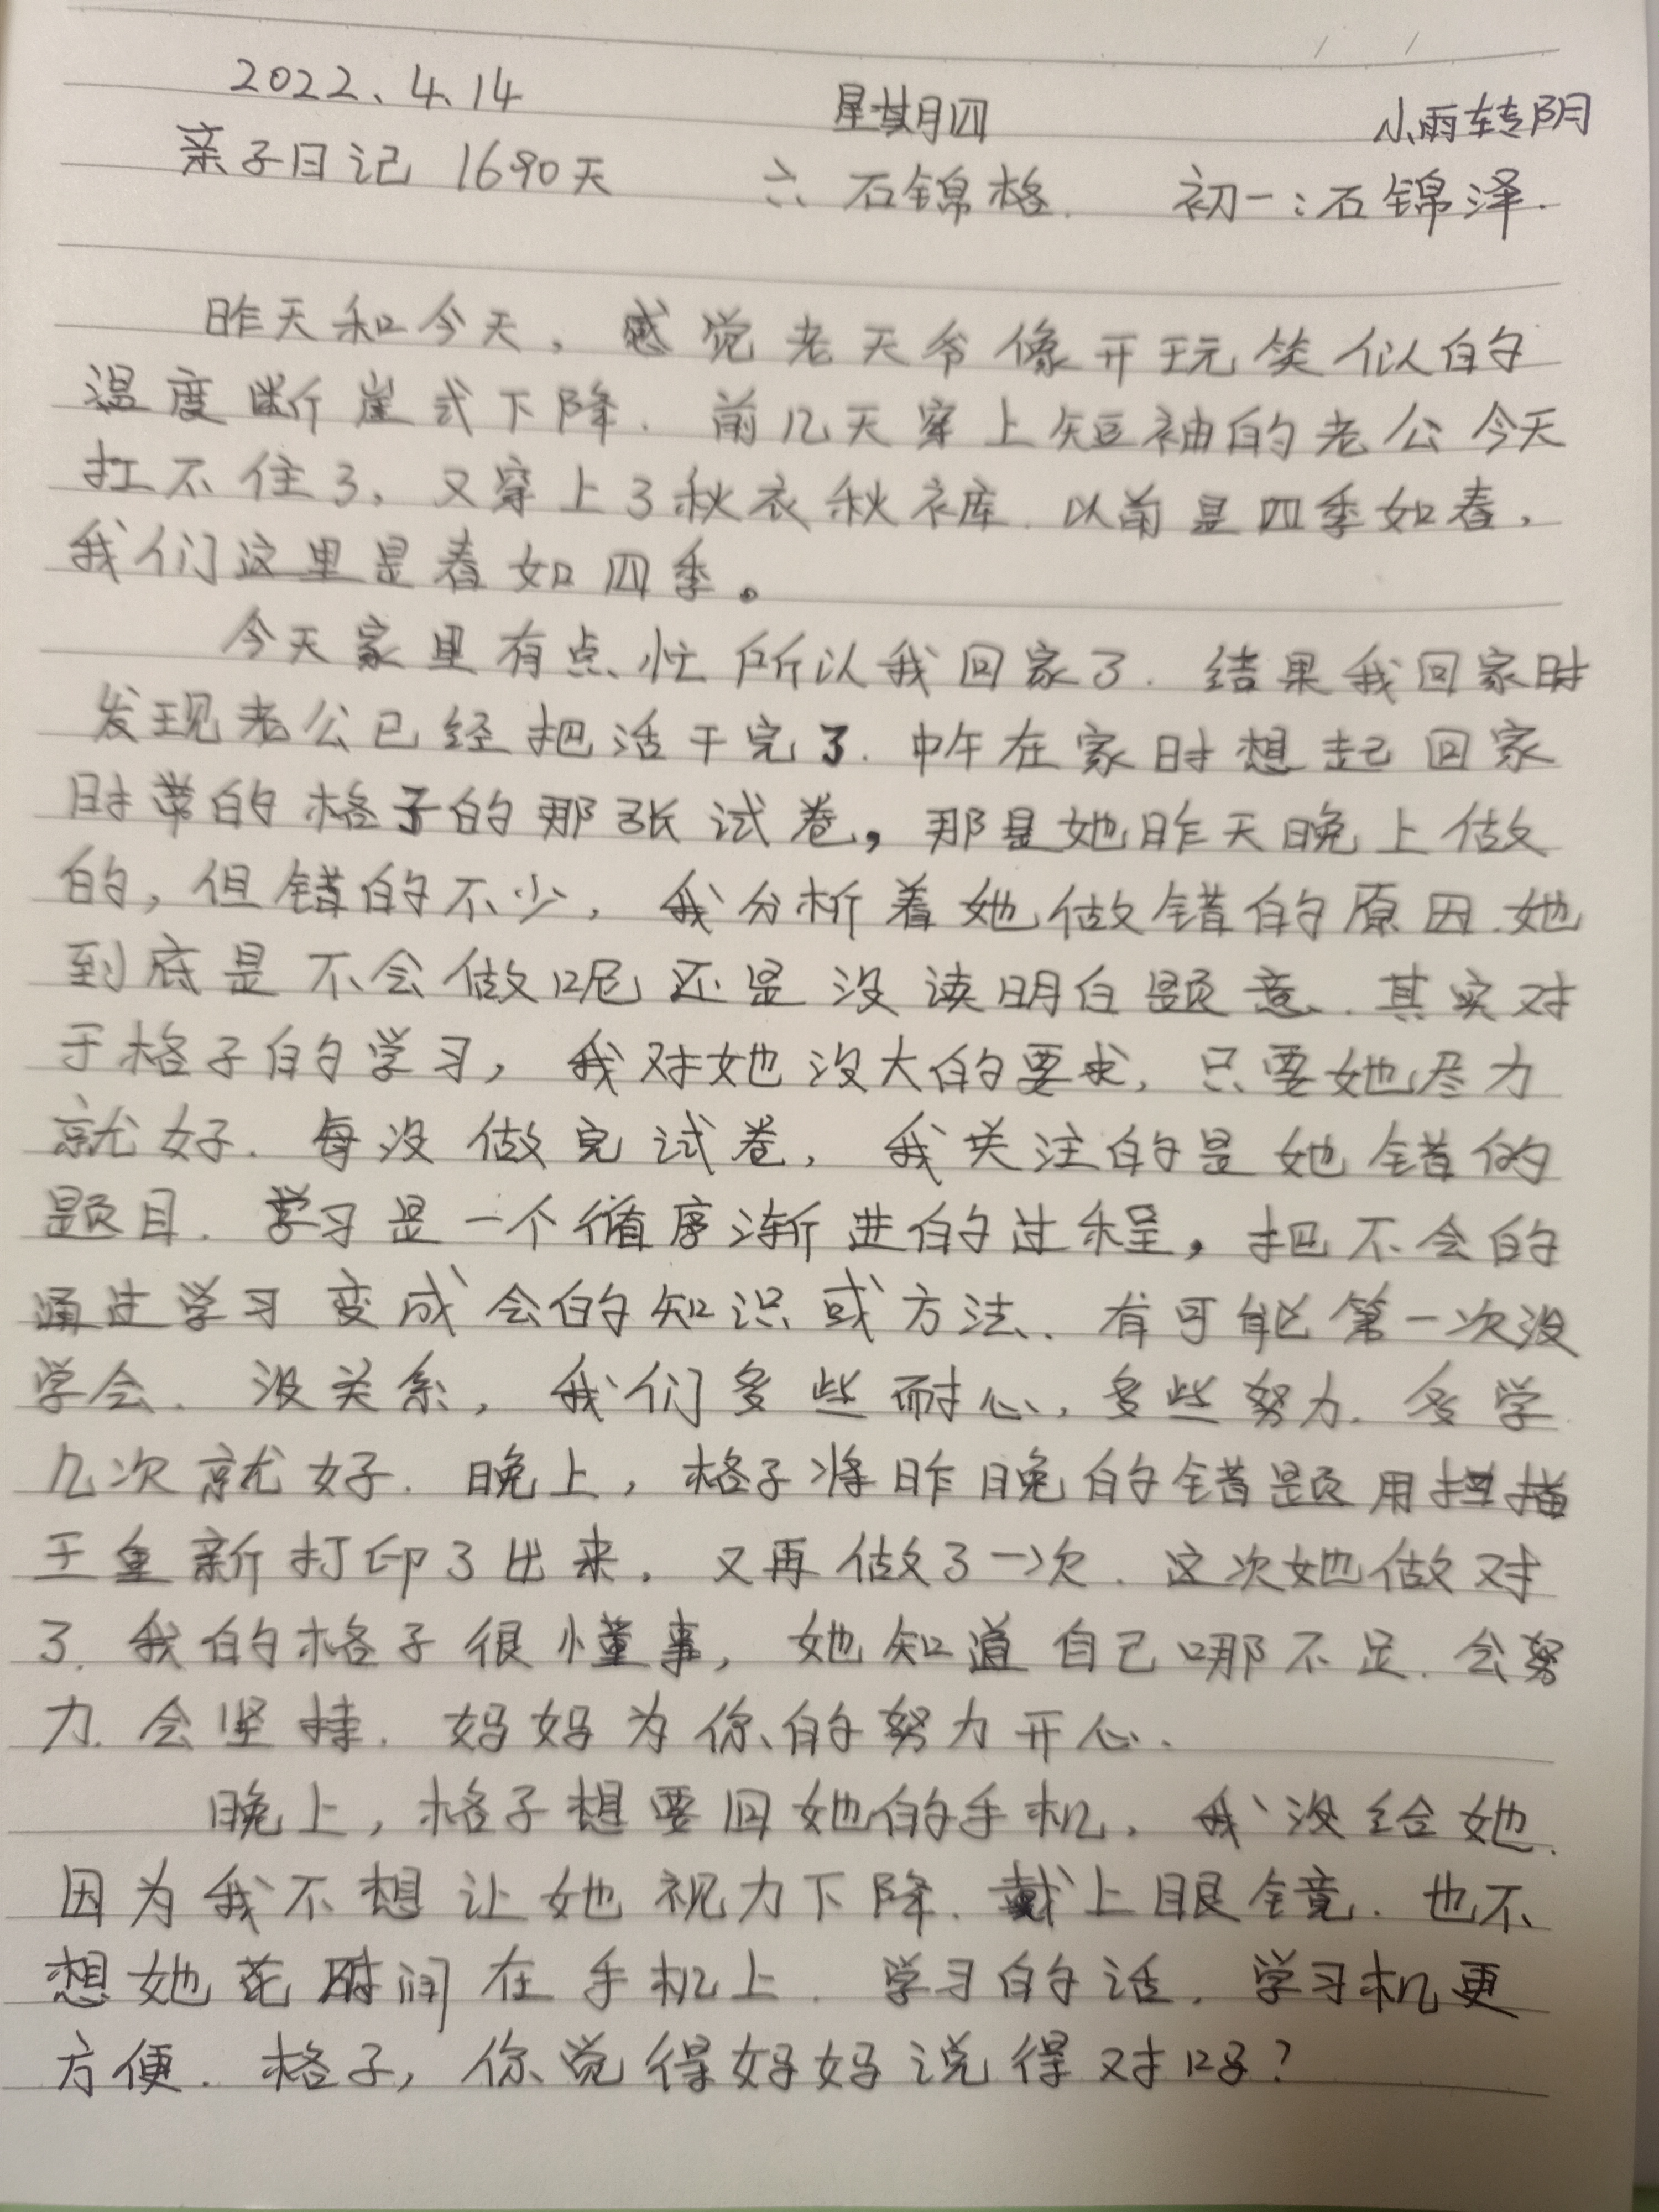 2022、4.14 星期四 小雨转阴
亲子日记 1690天 六 石锦格. 初一:石锦泽.
昨天和今天，感觉老天爷像开玩笑似的
温度断崖式下降. 前几天穿上短袖的老公今天
扛不住了，又穿上了秋衣秋裤. 以前是四季如春，
我们这里是春如四季。
今天家里有点忙所以我回家了. 结果我回家时
发现老公已经把活干完了. 中午在家时想起回家
时带的格子的那张试卷，那是她昨天晚上做
的，但错的不少，我分析着她做错的原因.她
到底是不会做呢还是没读明白题意. 其实对
于格子的学习，我对她没大的要求，只要她尽力
就好. 每没做完试卷，我关注的是她错的
题目. 学习是一个循序渐进的过程，把不会的
通过学习变成会的知识或方法. 有可能第一次没
学会. 没关系，我们多些耐心，多些努力. 多学
几次就好. 晚上，格子将昨晚的错题用扫描
王重新打印了出来，又再做了一次. 这次她做对
了. 我的格子很懂事，她知道自己哪不足. 会努
力. 会坚持. 妈妈为你的努力开心.
晚上，格子想要回她的手机，我没给她.
因为我不想让她视力下降. 戴上眼镜. 也不
想她花时间在手机上. 学习的话，学习机更
方便. 格子，你觉得妈妈说得对吗?